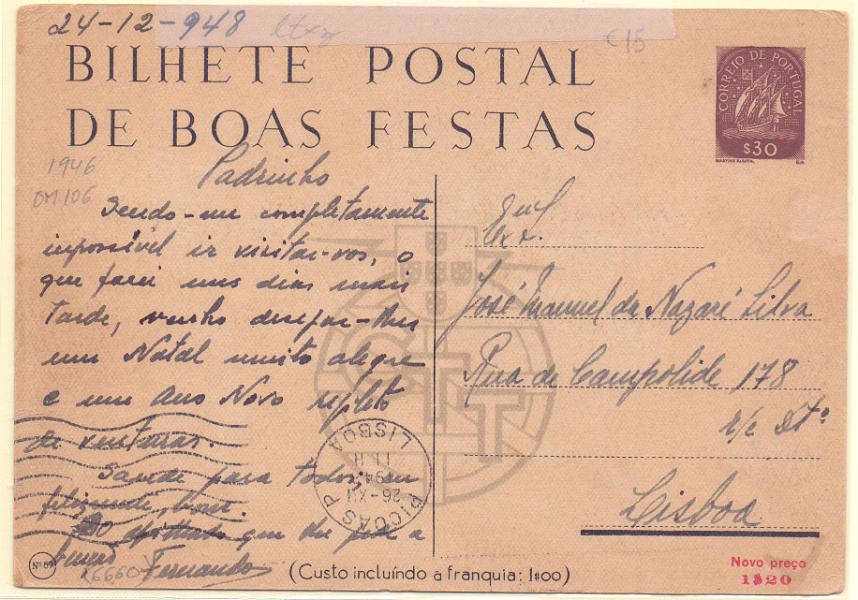 24-12-948
€15
BILHETE POSTAL
DE BOAS FESTAS
CORREIO DE PORTUGAL
$30
1946
OM 106
Padrinho
Sendo-me completamente
impossível ir visitar-vos, o
que farei uns dias mais
tarde, venho desejar-lhes
um Natal muito alegre
e um Ano Novo repleto
de venturas.
Saude para todos, em
Do afilhado que lhe pede a
Fernando
Exmo. Sr.
José Manuel da Nazaré Silva
Rua de Campolide 178
r/c Dtº
Lisboa
CTT
PICOAS
26-XII
LISBOA
(Custo incluíndo a franquia: 1$00)
Novo preço
1$20